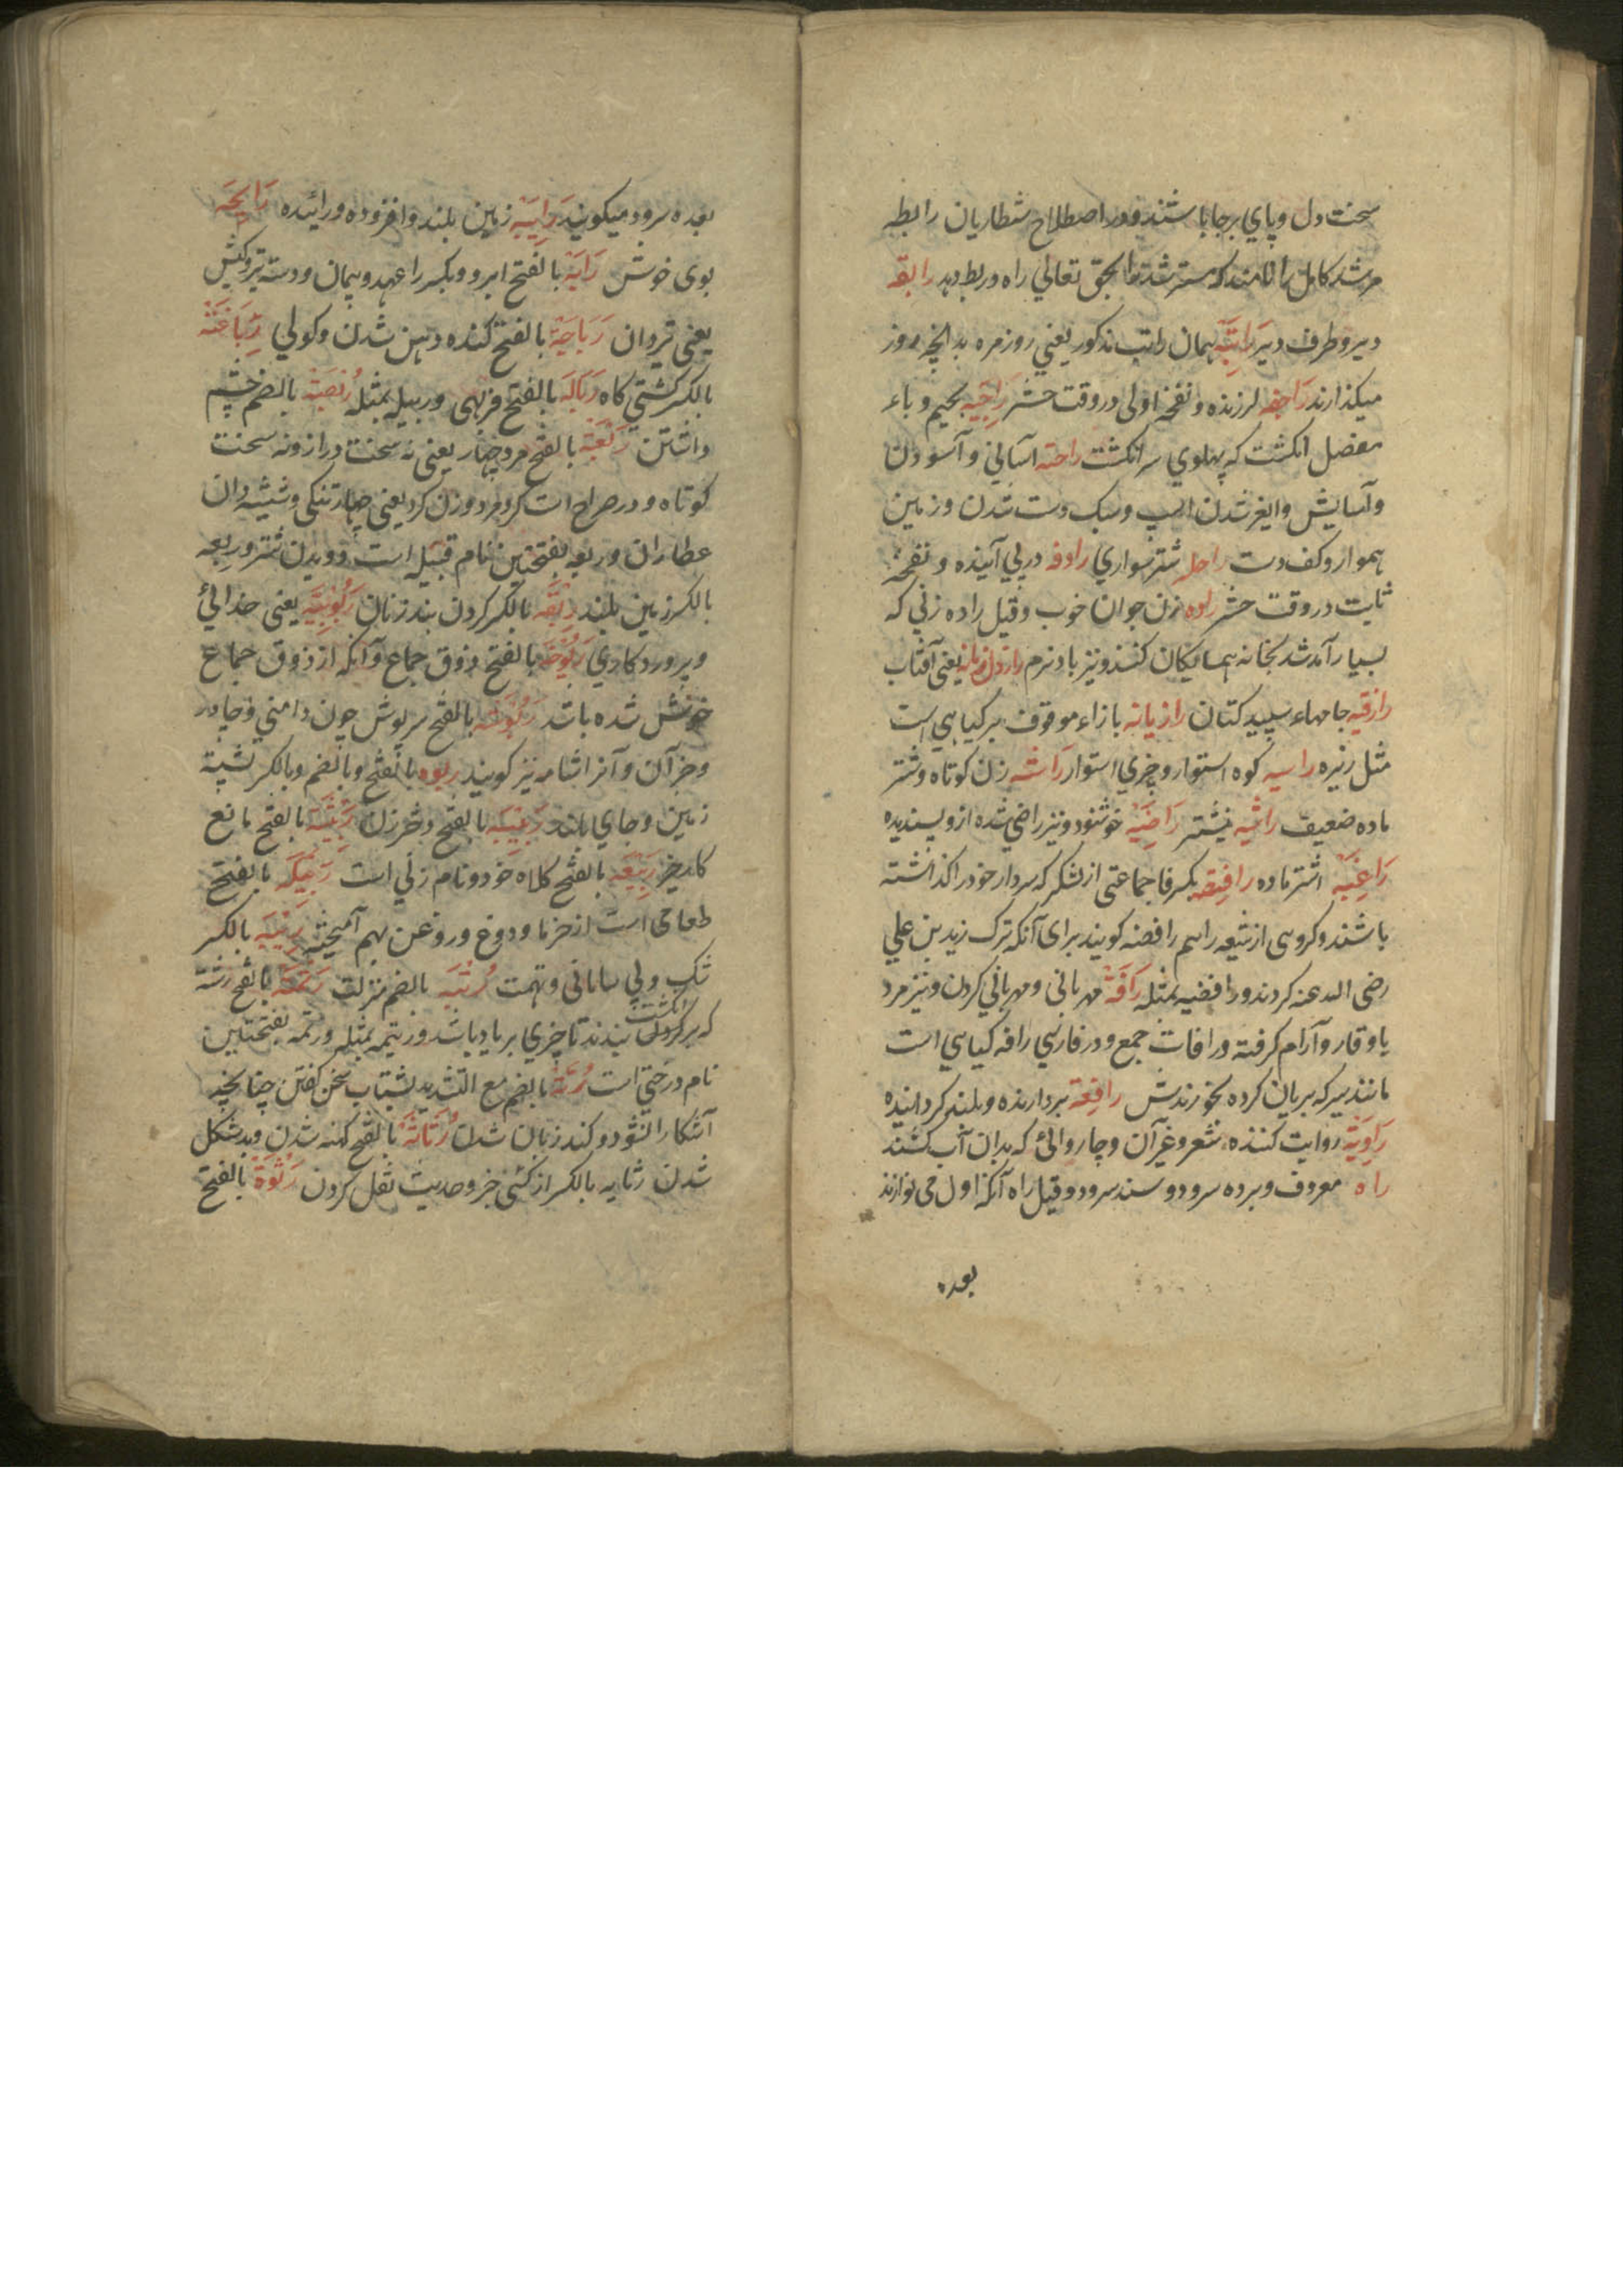 سخت دل و پاي برجا باشند و در اصطلاح شطاريان رابطه
مرشد كامل را نامند كه مسترشد را بحق تعالي راه و ربط دهد رابقه
دير و طرف دير رَاتِبَه همان راتب مذكور يعني روزمره بدانچه روز
ميكذارند رَاجفه لرزنده و نفخه اولى در وقت حشر رَاجِبَه بجيم و باء
مفصل انكشت كه پهلوي سر انكشت راحته آساني و آسودن
و آسايش و شدن اسب و سبك دست شدن و زمين
هموار و كف دست راحله شتر سواري رادفه در پي آينده و نفخه
ثابت در وقت حشر راده زن جوان خوب و قيل راده زني كه
بسيار آمد شد بخانه همسايكان كند و نيز باد نرم يعني آفتاب
رازقيه جامهاء سپيد كتان رازيانه بازاء موقوف بركياهي است
مثل زيره راسيه كوه استوار و چيزي استوار رَاشه زن كوتاه و شتر
ماده ضعيف راشيه نيشتر رَاضِيَة خوشنود و نيز راضي شده ازو پسنديده
رَاغِيَه اشتر ماده رافِضه بكسر فا جماعتى از لشكر كه سردار خود را كذاشته
باشند و كروهى از شيعه را هم رافضه كويند براى آنكه ترك زيد بن علي
رضى الله عنه كردند و رافضيه بمثله رَافَةْ مهرباني و مهرباني كردن و نيز مرد
باوقار و آرام كرفته و رافات جمع و در فارسي رافه كياهي است
مانند سير كه بريان كرده بخورندش رافِعَة بردارنده و بلند كرداننده
رَاوِيَة روايت كننده شعر و غير آن و چاروائ كه بدان آب كشند
راه معروف و برده سرود و سند سرود و قيل راه آنكه اول مى نوازند
بعده
بعده سرود ميكويند رَابِيَة زمين بلند و افزوده و رائنده رَايحَه
بوى خوش رَابَة بالفتح ابر و و بكسر را عهد و پيمان و دسته تير و كيش
يعنى تردان رَبَاجَة بالفتح كنده ذهن شدن و كولي رِبَاغَة
بالكسر كشتي كاه رَبَالَه بالفتح فربهى و ربيله بمثله رُبْصَة بالضم چشم
داشتن رَبْعَة بالفتح مرد چهار يعنى نه سخت دراز و نه سخت
كوتاه و در صراح است كه مرد و زن كرد يعنى و شيشه دان
عطاران و ربعه بفتحتين نام قبيله است و دويدن شتر و ربعه
بالكسر زمين بلند رِبْقَه بالكسر كردن بند زنان رَبُوبِيَّه يعنى خدائئ
و پروردكاري رَبُوخَه بالفتح ذوق جماع و آنكه از ذوق جماع
خوش شده باشد بالفتح سرپوش چون دامني و چادر
و جز آن و آنرا شامه نيز كويند ربوه بالفتح و بالضم و بالكسر پشته
زمين و جاي بلند رَبيبَه بالفتح دختر زن رَبِيْثَة بالفتح مانع
كار خير رَبيْعَه بالفتح كلاه خود و نام زني است رَبيْكَه بالفتح
طعامى است از خرما و دوغ و روغن بهم آميخته رِيْبَه بالكسر
شك و بي سامانى و تهمت رُتْبَه بالضم منزلت رَتْمَة بالفتح رشته
كه بر انكشت بندند تا چيزي بر ياد باشد و رتيمه بمثله و رتمه بفتحتين
نام درختي است رُتَّة بالضم مع التشديد بشتاب سخن كفتن چنانچه
آشكارا نشود و كند زبان شدن رُثَاثَة بالفتح كهنه شدن و بدشكل
شدن رثايه بالكسر از كسى خبر و حديث نقل كردن رَثوَة بالفتح